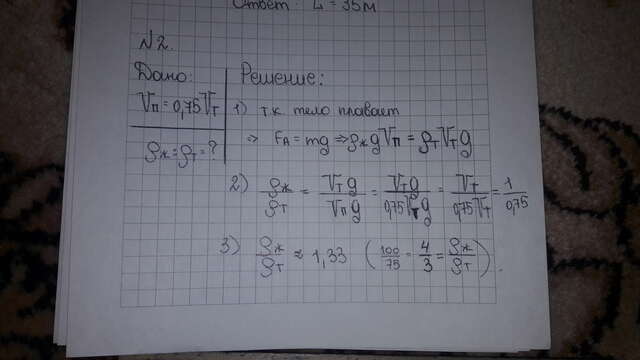 Ответ 4 35м
N 2.
Дано:
Vп = 0,75 Vт
ρж = ρт = ?
Решение:
1) т.к тело плавает
⇒ Fа = mg ⇒ ρж g Vп = ρт Vт g
2) ρж/ρт = Vт g/Vп g = Vт g/0,75 Vт g = Vт/0,75 Vт = 1/0,75
3) ρж/ρт ≈ 1,33 (100/75 = 4/3 = ρж/ρт).